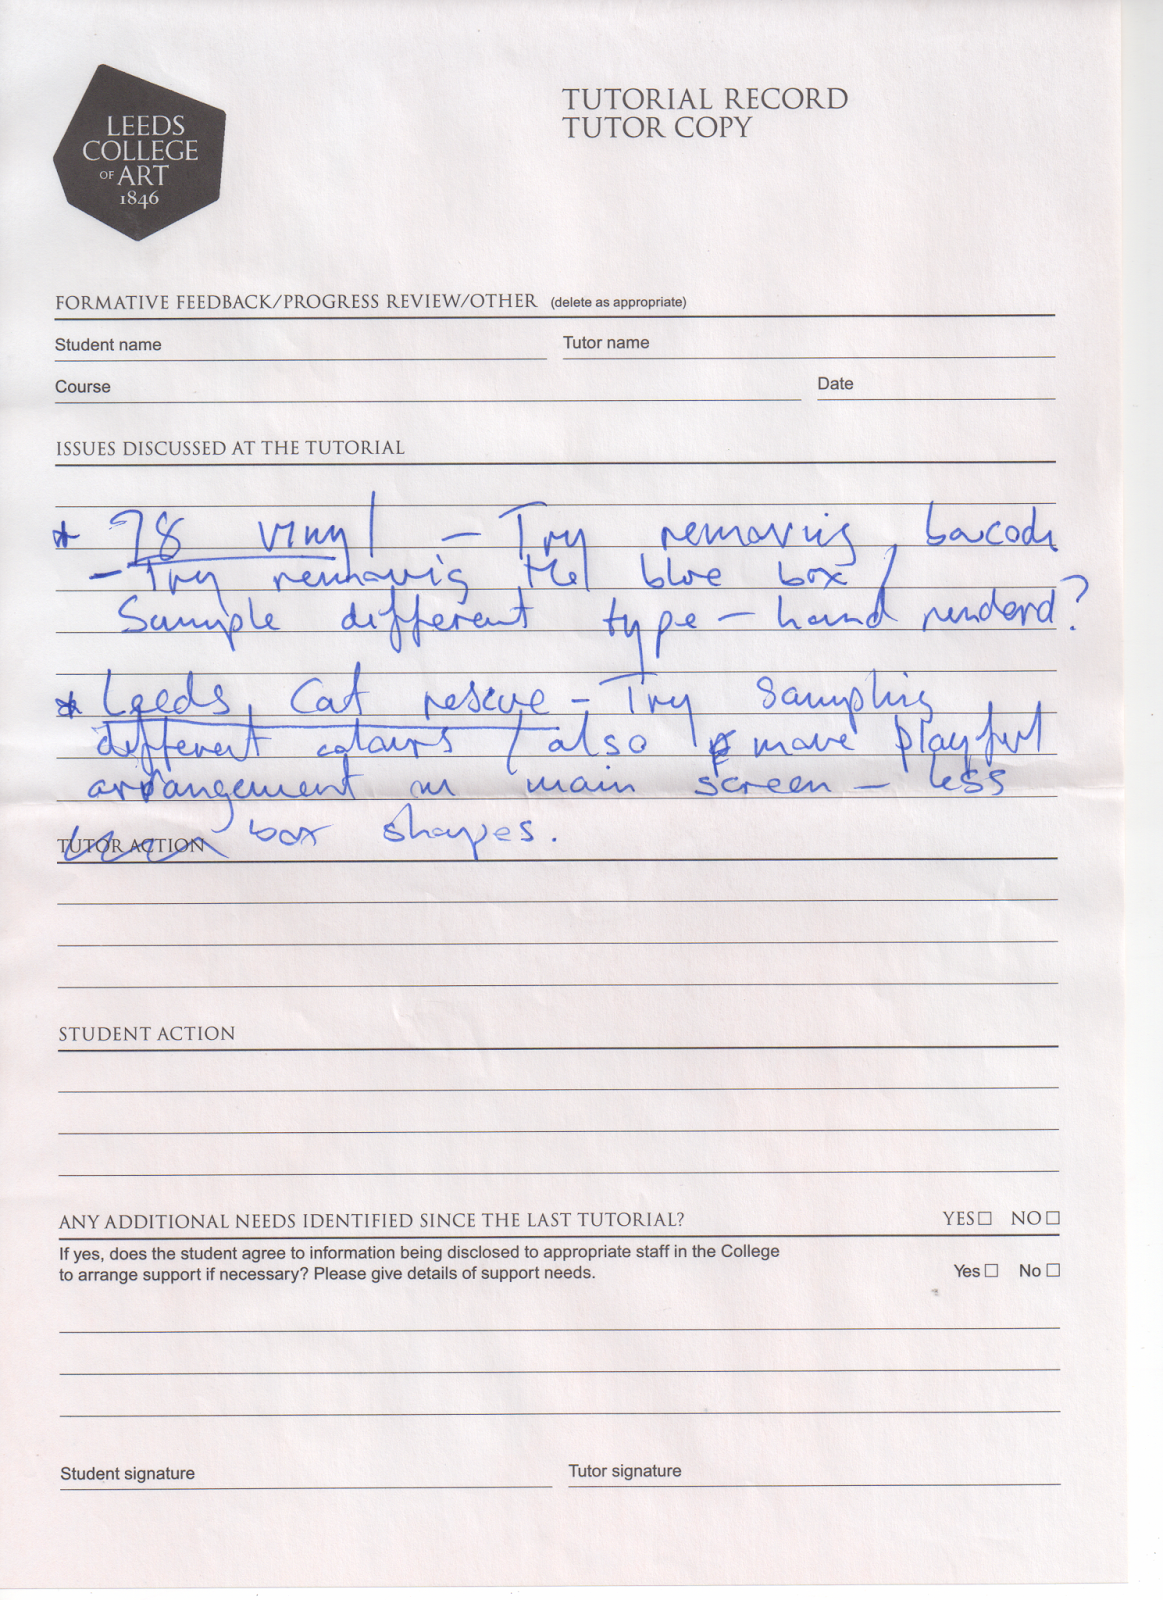 LEEDS
COLLEGE
OF ART
1846
TUTORIAL RECORD
TUTOR COPY
FORMATIVE FEEDBACK/PROGRESS REVIEW/OTHER (delete as appropriate)
Student name Tutor name
Course Date
ISSUES DISCUSSED AT THE TUTORIAL
* 78 vinyl — Try removing barcode
- Try removing the blue box /
Sample different type - hand renderd?
* Leeds Cat rescue - Try sampling
different colours / also more playful
arrangement in main screen - less
box shapes.
TUTOR ACTION
STUDENT ACTION
ANY ADDITIONAL NEEDS IDENTIFIED SINCE THE LAST TUTORIAL? YES☐ NO☐
If yes, does the student agree to information being disclosed to appropriate staff in the College
to arrange support if necessary? Please give details of support needs. Yes☐ No☐
Student signature Tutor signature